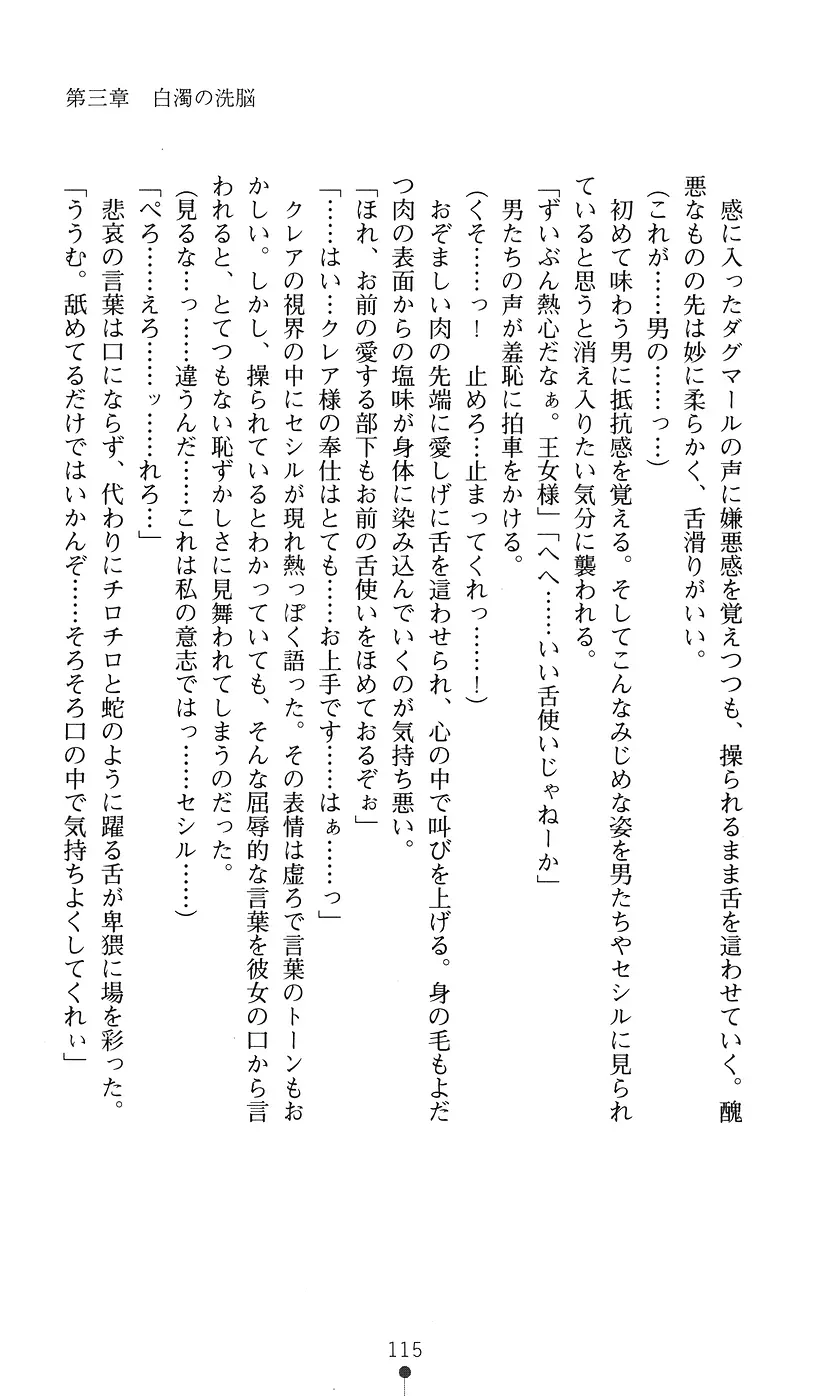 第三章　白濁の洗脳
感に入ったダグマールの声に嫌悪感を覚えつつも、操られるまま舌を這わせていく。醜
悪なものの先は妙に柔らかく、舌滑りがいい。
（これが……男の……っ…）
初めて味わう男に抵抗感を覚える。そしてこんなみじめな姿を男たちやセシルに見られ
ていると思うと消え入りたい気分に襲われる。
「ずいぶん熱心だなぁ。王女様」「へへ……いい舌使いじゃねーか」
男たちの声が羞恥に拍車をかける。
（くそ……っ！　止めろ…止まってくれっ……！）
おぞましい肉の先端に愛しげに舌を這わせられ、心の中で叫びを上げる。身の毛もよだ
つ肉の表面からの塩味が身体に染み込んでいくのが気持ち悪い。
「ほれ、お前の愛する部下もお前の舌使いをほめておるぞぉ」
「……はい…クレア様の奉仕はとても……お上手です……はぁ……っ」
クレアの視界の中にセシルが現れ熱っぽく語った。その表情は虚ろで言葉のトーンもお
かしい。しかし、操られているとわかっていても、そんな屈辱的な言葉を彼女の口から言
われると、とてつもない恥ずかしさに見舞われてしまうのだった。
（見るな…っ……違うんだ……これは私の意志ではっ……セシル……）
「ぺろ……えろ……ッ……れろ…」
悲哀の言葉は口にならず、代わりにチロチロと蛇のように躍る舌が卑猥に場を彩った。
「ううむ。舐めてるだけではいかんぞ……そろそろ口の中で気持ちよくしてくれぃ」
115